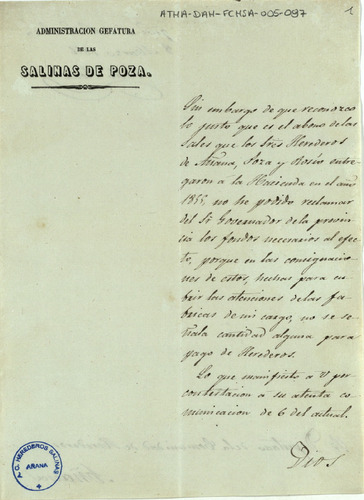 ATHA-DAH-FCHSA-005-097
1
ADMINISTRACION GEFATURA
DE LAS
SALINAS DE POZA.
Sin embargo de que reconozco
lo justo que es el abono de las
sales que los Sres Herederos
de Añana, Poza y Rosío entre,
garon á la Hacienda en el año
1855, no he podido reclamar
del Sr Gobernador de la provin
cia los fondos necesarios al efec
to, porque en las consignacio
nes de estos, hechas para cu
brir las atenciones de las fa
bricas de mi cargo, no se se
ñala cantidad alguna para
pago de Herederos.
Lo que manifiesto a V por
contestacion a su atenta co
municacion de 6 del actual.
Dios
HEREDEROS SALINAS
AÑANA